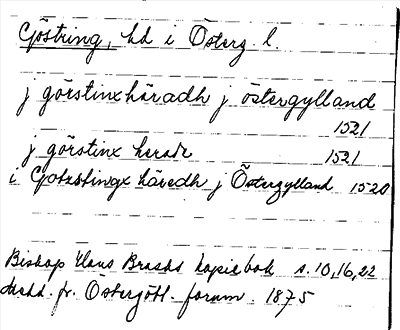 Göstring, hd i Österg. l.
j görstinxhäradh j östergylland
1521
j görstinx herade 1521
i Gotustingx häredh j Östergylland 1520
Biskop Hans Brasks kopiebok s. 10, 16, 22
Medd. fr. Östergötl. fornm. 1875